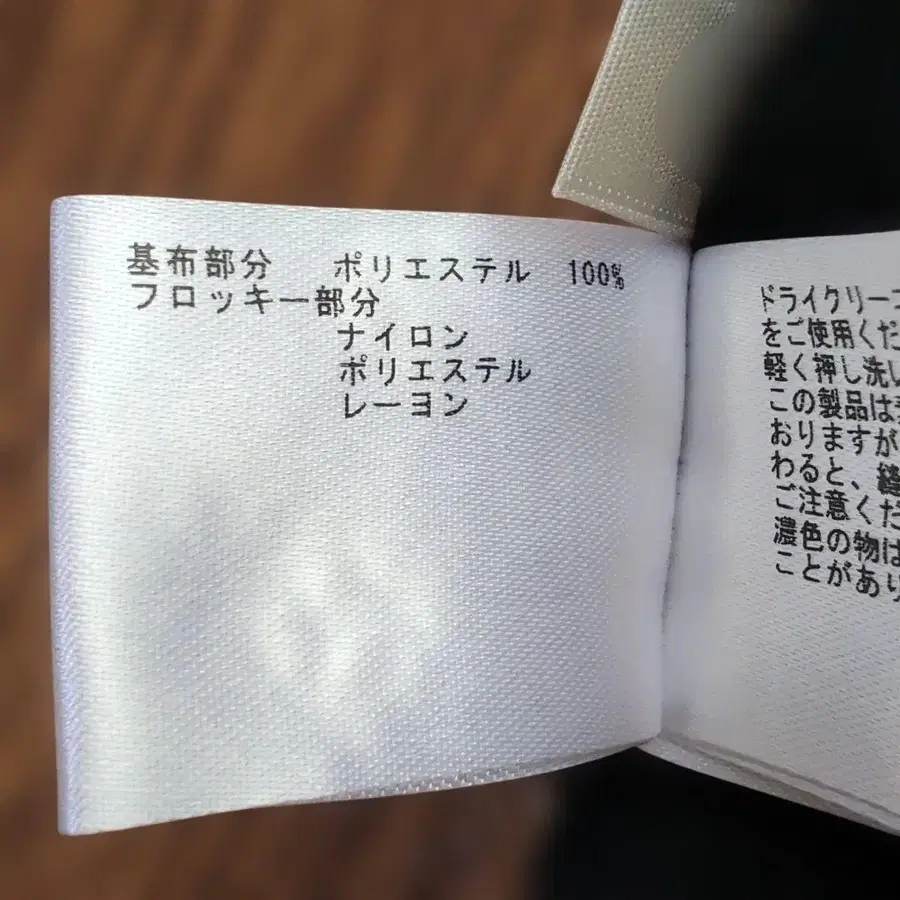 基布部分　ポリエステル　100%
フロッキー部分
ナイロン
ポリエステル
レーヨン
ドライクリー
をご使用くだ
軽く押し洗い
この製品は
おりますが
わると、縫
ご注意くだ
濃色の物は
ことがあり